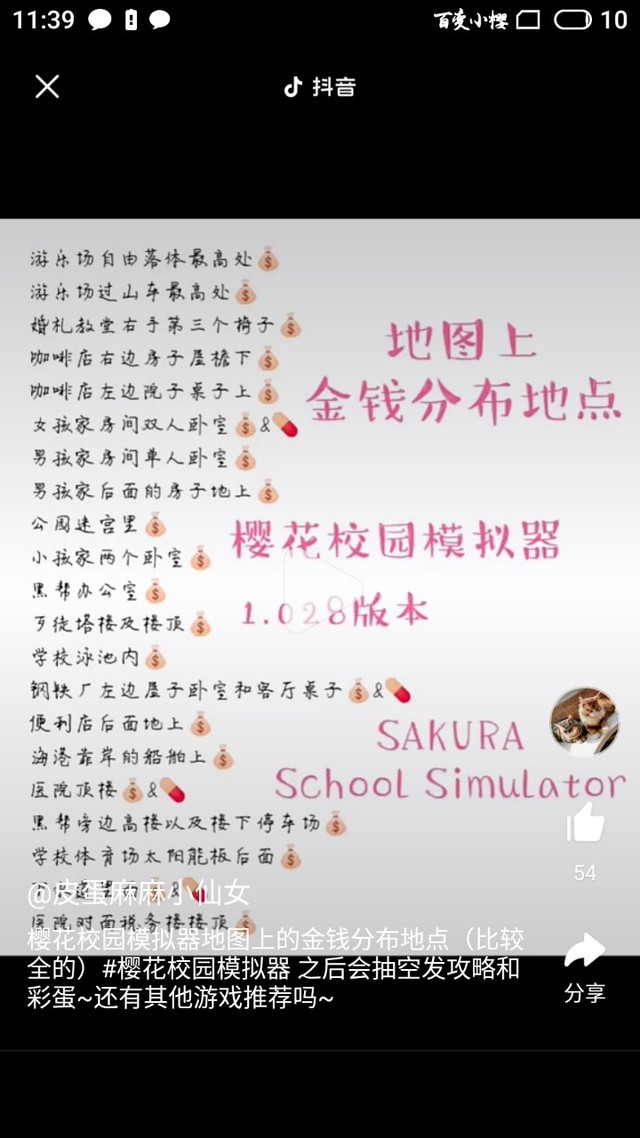 11:39
百变小樱
10
抖音
游乐场自由落体最高处
游乐场过山车最高处
婚礼教堂右手第三个椅子
咖啡店右边房子屋檐下
咖啡店左边院子桌子上
女孩家房间双人卧室&
男孩家房间单人卧室
男孩家后面的房子地上
公园迷宫里
小孩家两个卧室
黑帮办公室
歹徒塔楼及楼顶
学校泳池内
钢铁厂左边屋子卧室和客厅桌子&
便利店后面地上
海港靠岸的船舶上
医院顶楼&
黑帮旁边高楼以及楼下停车场
学校体育场太阳能板后面
医院对面税务楼楼顶
地图上
金钱分布地点
樱花校园模拟器
1.028版本
SAKURA
School Simulator
54
分享
@皮蛋麻麻小仙女
樱花校园模拟器地图上的金钱分布地点（比较
全的）#樱花校园模拟器 之后会抽空发攻略和
彩蛋~还有其他游戏推荐吗~